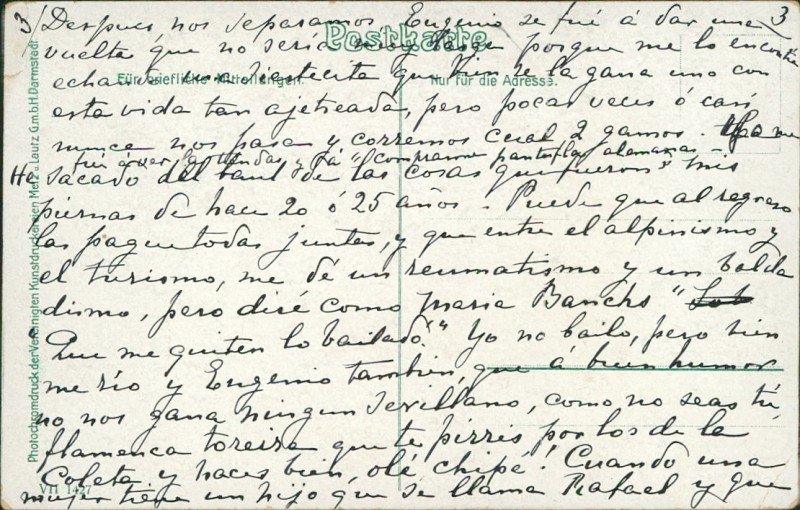 3/ Despues nos separamos Eugenio se fué á dar una 3
Postkarte
vuelta, que no sería muy larga porque me lo encontré
echando una siestecita que bien se la gana uno con
Für briefliche Mitteilungen.
Nur für die Adresse.
esta vida tan ajetreada, pero pocas veces ó casi
nunca nos pasa y corremos cual 2 gamos. Yo me
fuí á ver tiendas y á comprarme pantuflas alemanas
He sacado del baul de las cosas "que fueron" mis
piernas de hace 20 ó 25 años. Puede que al regreso
las pague todas juntas, y que entre el alpinismo y
el turismo, me dé un reumatismo y un balda
dismo, pero diré como Maria Banchs
"Que me quiten lo bailado." Yo no bailo, pero bien
me río y Eugenio tambien, que á buen humor
no nos gana ningun Sevillano, como no seas tú,
flamenca torera que te pirris por los de la
Coleta y haces bien, olé chipé! Cuando una
mujer tiene un hijo que se llama Rafael y que
VH 1427
Photochromdruck der Vereinigten Kunstdruckereien Metz u. Lautz G.m.b.H. Darmstadt